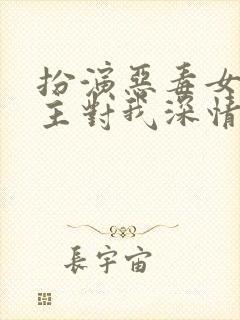 扮演惡毒女
主對我深情
長宇宙